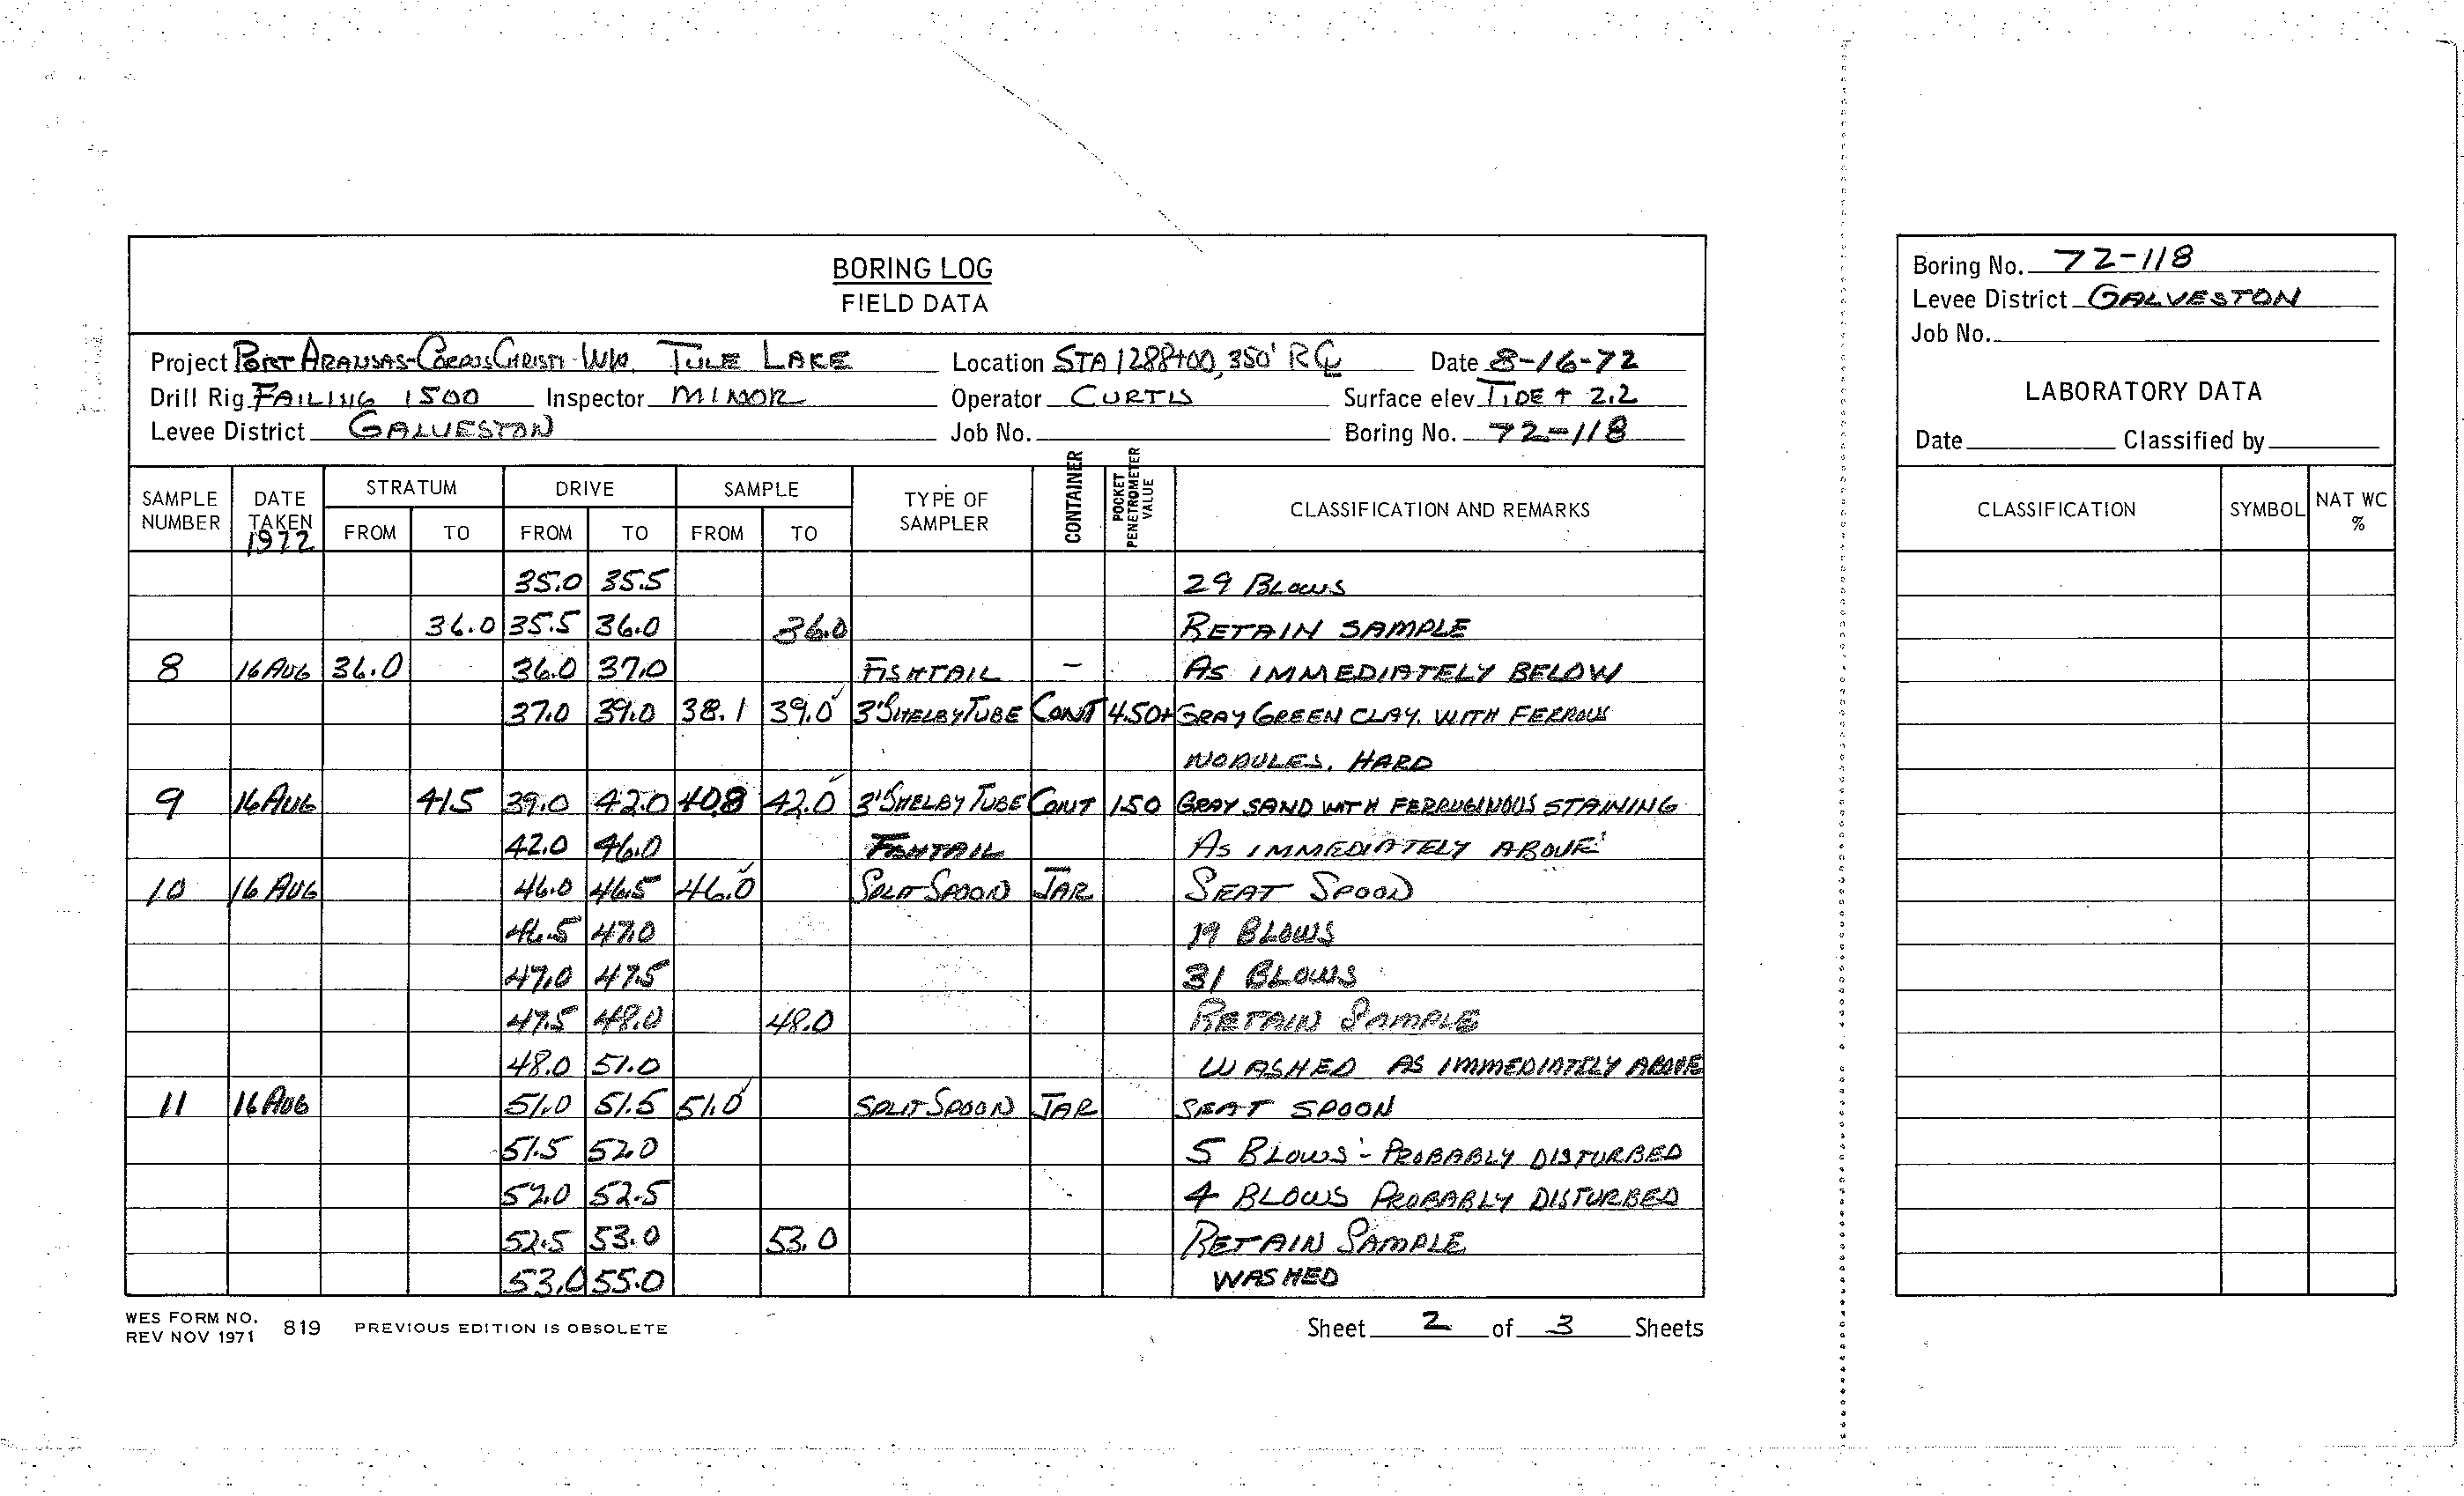 BORING LOG
FIELD DATA
Project PORT ARANSAS-CORPUS CHRISTI WW. TULE LAKE Location STA 1288+00, 350' R ℄ Date 8-16-72
Drill Rig FAILING 1500 Inspector MINOR Operator CURTIS Surface elev TIDE + 2.2
Levee District GALVESTON Job No. Boring No. 72-118
SAMPLE NUMBER DATE TAKEN 1972 STRATUM FROM TO DRIVE FROM TO SAMPLE FROM TO TYPE OF SAMPLER CONTAINER POCKET PENETROMETER VALUE CLASSIFICATION AND REMARKS
35.0 35.5 29 BLOWS
36.0 35.5 36.0 36.0 RETAIN SAMPLE
8 16 AUG 36.0 36.0 37.0 FISHTAIL - AS IMMEDIATELY BELOW
37.0 39.0 38.1 39.0 3" SHELBY TUBE CONT 4.50+ GRAY GREEN CLAY. WITH FERROUS
NODULES. HARD
9 16 AUG 41.5 39.0 42.0 40.8 42.0 3" SHELBY TUBE CONT 1.50 GRAY SAND WITH FERRUGINOUS STAINING
42.0 46.0 FISHTAIL AS IMMEDIATELY ABOVE
10 16 AUG 46.0 46.5 46.0 SPLIT SPOON JAR SEAT SPOON
46.5 47.0 19 BLOWS
47.0 47.5 31 BLOWS
47.5 48.0 48.0 RETAIN SAMPLE
48.0 51.0 WASHED AS IMMEDIATELY ABOVE
11 16 AUG 51.0 51.5 51.0 SPLIT SPOON JAR SEAT SPOON
51.5 52.0 5 BLOWS - PROBABLY DISTURBED
52.0 52.5 4 BLOWS PROBABLY DISTURBED
52.5 53.0 53.0 RETAIN SAMPLE
53.0 55.0 WASHED
WES FORM NO. 819 PREVIOUS EDITION IS OBSOLETE
REV NOV 1971
Sheet 2 of 3 Sheets
Boring No. 72-118
Levee District GALVESTON
Job No.
LABORATORY DATA
Date Classified by
CLASSIFICATION SYMBOL NAT WC %